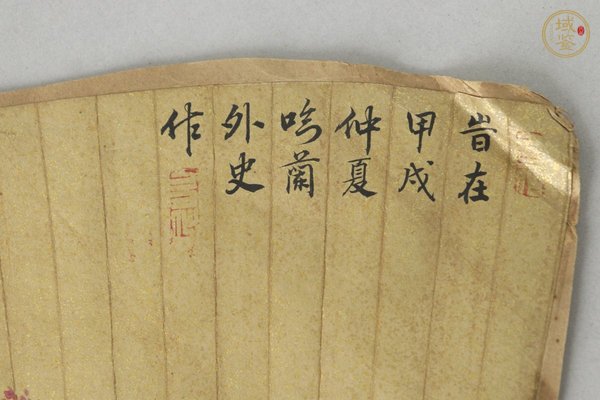 旹在
甲戌
仲夏
吟蘭
外史
作
域鉴